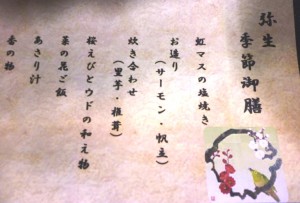 弥生
季節御膳
虹マスの塩焼き
お造り
(サーモン・帆立)
炊き合わせ
(里芋・椎茸)
桜えびとウドの和え物
菜の花ご飯
あさり汁
香の物